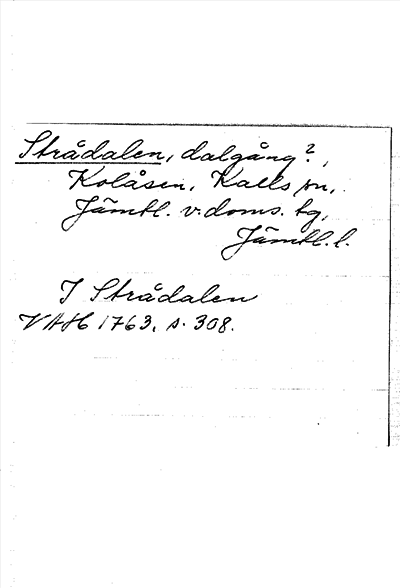 Strådalen, dalgång?,
Kolåsen, Kalls sn,
Jämtl. v. doms. tg,
Jämtl. l.
I Strådalen
VAH 1763, s. 308.